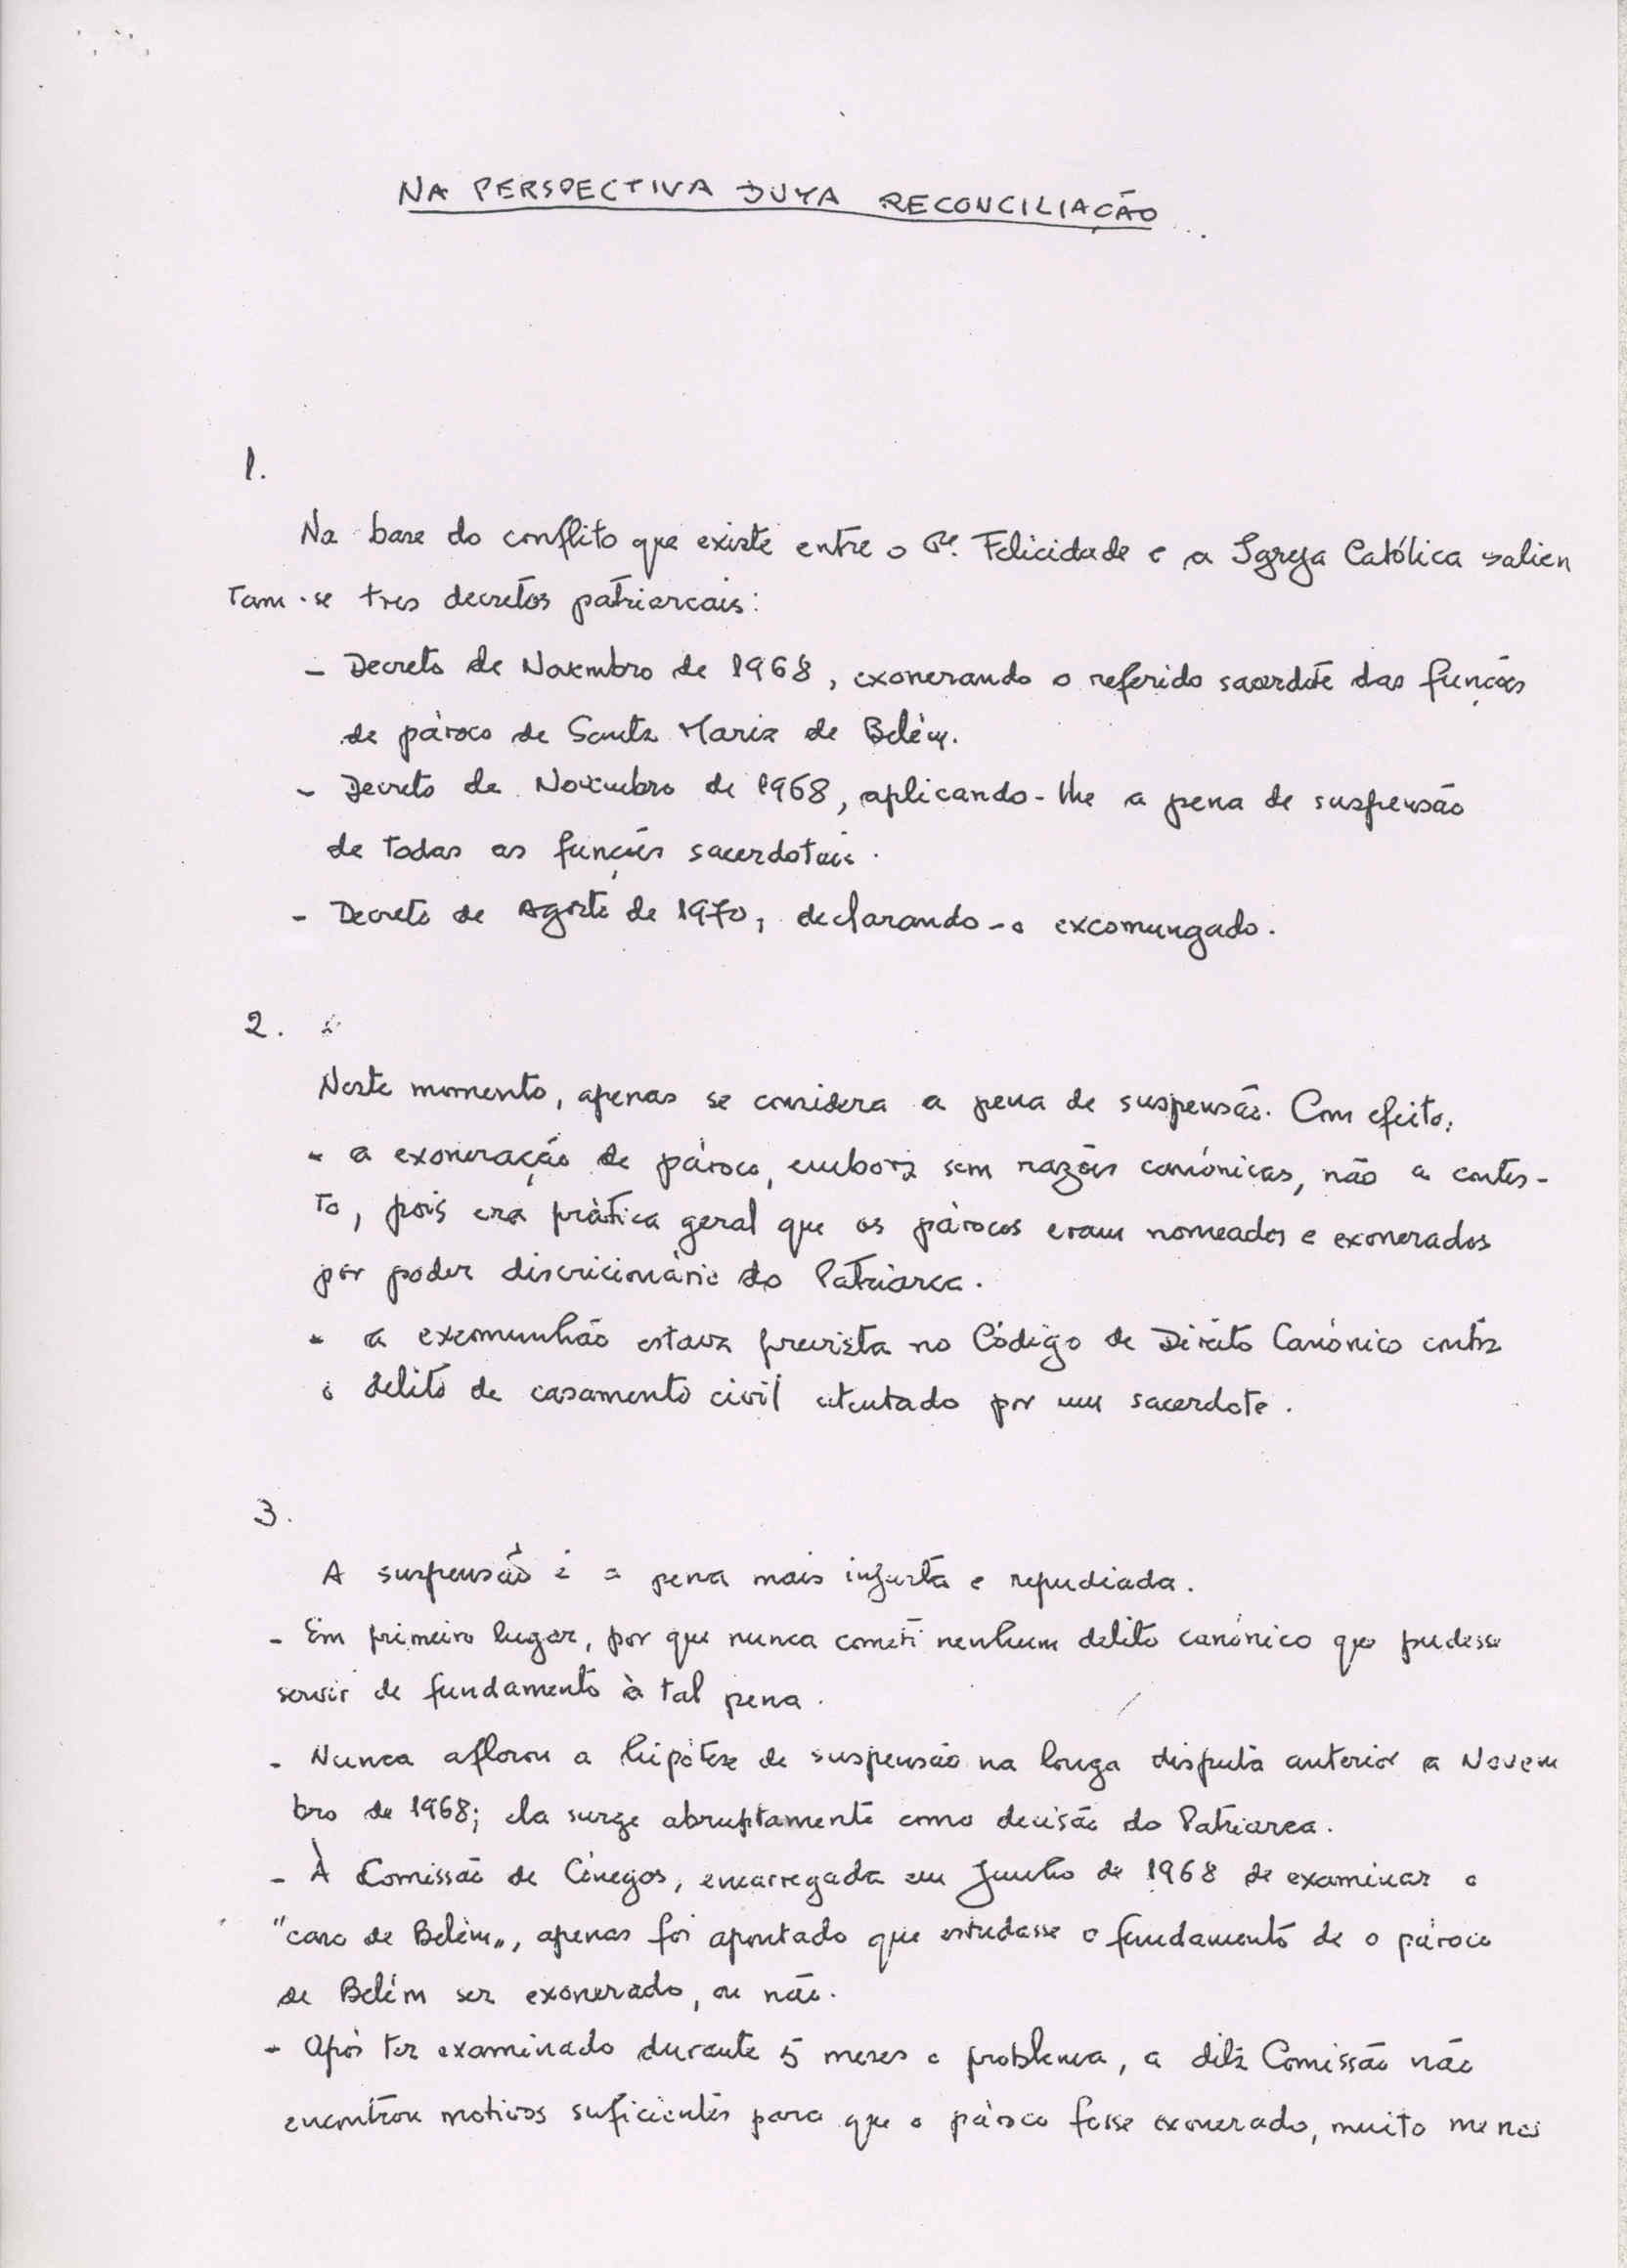 NA PERSPECTIVA DUMA RECONCILIAÇÃO...
1.
Na base do conflito que existe entre o Pe. Felicidade e a Igreja Católica salien
tam-se tres decretos patriarcais:
- Decreto de Novembro de 1968, exonerando o referido sacerdote das funções
de pároco de Santa Maria de Belém.
- Decreto de Novembro de 1968, aplicando-lhe a pena de suspensão
de todas as funções sacerdotais.
- Decreto de Agosto de 1970, declarando-o excomungado.
2.
Neste momento, apenas se considera a pena de suspensão. Com efeito:
- a exoneração de pároco, embora sem razões canónicas, não a contes-
to, pois era prática geral que os párocos eram nomeados e exonerados
por poder discricionário do Patriarca.
- a excomunhão estava prevista no Código de Direito Canónico contra
o delito de casamento civil atentado por um sacerdote.
3.
A suspensão é a pena mais injusta e repudiada.
- Em primeiro lugar, por que nunca cometi nenhum delito canónico que pudesse
servir de fundamento à tal pena.
- Nunca aflorou a hipótese de suspensão na longa disputa anterior a Novem
bro de 1968; ela surge abruptamente como decisão do Patriarca.
- À Comissão de Cónegos, encarregada em Junho de 1968 de examinar o
"caso de Belém", apenas foi apontado que estudasse o fundamento de o pároco
de Belém ser exonerado, ou não.
- Após ter examinado durante 5 meses o problema, a dita Comissão não
encontrou motivos suficientes para que o pároco fosse exonerado, muito menos